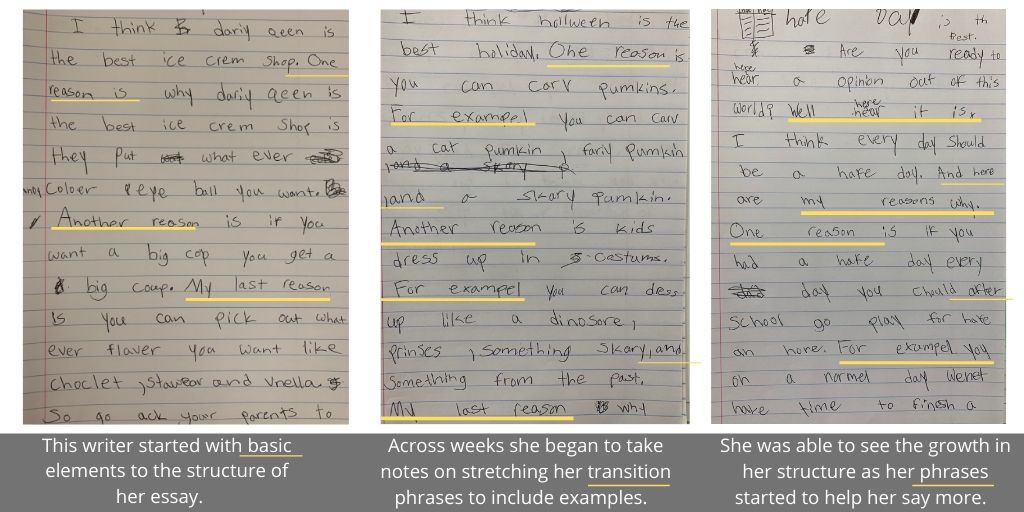 I think dariy qeen is
the best ice crem shop. One
reason is why dariy qeen is
the best ice crem shop is
they put what ever
Coloer eye ball you want.
Another reason is if you
want a big cop you get a
big coup. My last reason
is you can pick out what
ever flaver you want like
choclet, stawear and vnella
So go ack your parents to
This writer started with basic
elements to the structure of
her essay.
I think hollween is the
best holiday. One reason is
you can carv pumkins.
For exampel you can carv
a cat pumkin, fariy pumkin
and a skary p
and a skary pumkin.
Another reason is kids
dress up in Costums.
For exampel you can dess
up like a dinosore,
prinses, something skary, and
something from the past.
My last reason why
Across weeks she began to take
notes on stretching her transition
phrases to include examples.
hafe day is th
best.
Are you ready to
here
hear a opinion out of this
world? Well here it is.
I think every day should
be a hafe day. And here
are my reasons why.
One reason is if you
had a hafe day every
day you chould after
school go play for hafe
an hore. For exampel you
on a normel day wenet
have time to finish a
She was able to see the growth in
her structure as her phrases
started to help her say more.